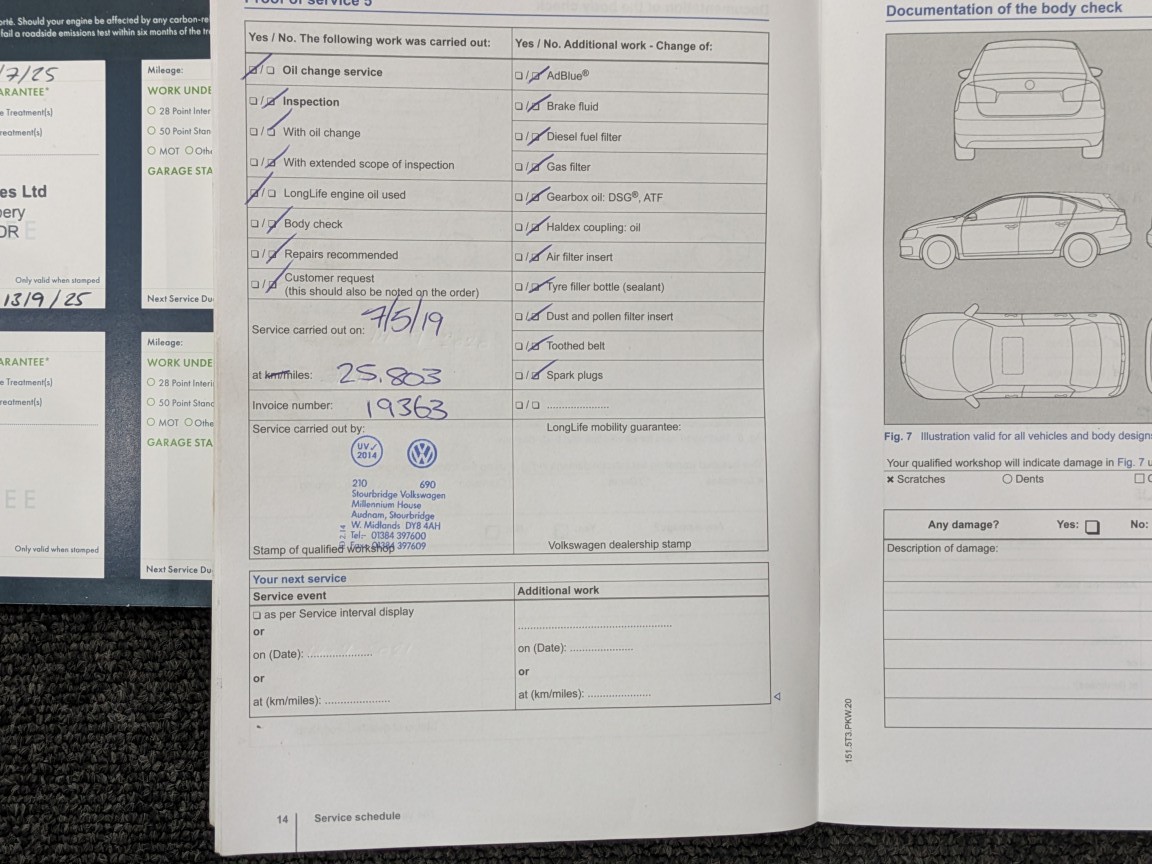 orté. Should your engine be affected by any carbon-re
fail a roadside emissions test within six months of the tre
/7/25
ARANTEE*
e Treatment(s)
reatment(s)
es Ltd
pery
DR
Only valid when stamped
13/9/25
ARANTEE*
e Treatment(s)
reatment(s)
EE
Only valid when stamped
Mileage:
WORK UNDE
28 Point Inter
50 Point Stan
MOT Othe
GARAGE STA
Next Service Du
Mileage:
WORK UNDE
28 Point Interi
50 Point Stand
MOT Othe
GARAGE STA
Next Service Du
Proof of service 5
Yes / No. The following work was carried out:
Oil change service
Inspection
With oil change
With extended scope of inspection
LongLife engine oil used
Body check
Repairs recommended
Customer request
(this should also be noted on the order)
Service carried out on: 7/5/19
at km/miles: 25.803
Invoice number: 19363
Service carried out by:
UV
2014
210 690
Stourbridge Volkswagen
Millennium House
Audnam, Stourbridge
W. Midlands DY8 4AH
Tel:- 01384 397600
Fax:- 01384 397609
Stamp of qualified workshop
Yes / No. Additional work - Change of:
AdBlue®
Brake fluid
Diesel fuel filter
Gas filter
Gearbox oil: DSG®, ATF
Haldex coupling: oil
Air filter insert
Tyre filler bottle (sealant)
Dust and pollen filter insert
Toothed belt
Spark plugs
LongLife mobility guarantee:
Volkswagen dealership stamp
Your next service
Service event
as per Service interval display
or
on (Date): ....................
or
at (km/miles): ....................
Additional work
on (Date): ....................
or
at (km/miles): ....................
14 Service schedule
Documentation of the body check
Fig. 7 Illustration valid for all vehicles and body designs
Your qualified workshop will indicate damage in Fig. 7 u
Scratches Dents
Any damage? Yes: No:
Description of damage:
151.5T3.PKW.20